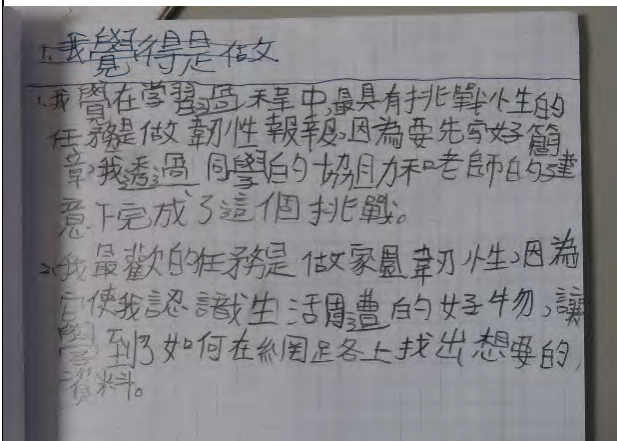 1.我覺得是做文
1.我覺在学習過程中,最具有挑戰性的
任務是做韌性報報,因為要先写好簡
章,我透過同學的協助和老師的建
意下完成了這個挑戰。
2.我最歡的任務是做家園韌性,因為
它使我認識生活周遭的好物,讓
學到了如何在網路上找出想要的
資料。